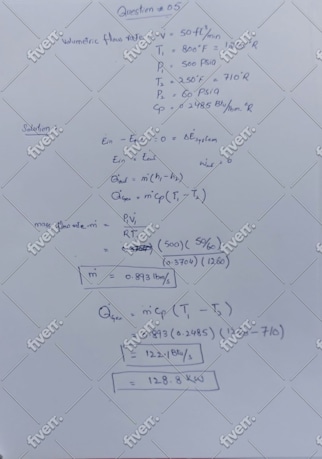 Question # 05
Volumetric flow rate = V = 50 ft³/min
T₁ = 800°F = 1260°R
P₁ = 500 Psia
T₂ = 250°F = 710°R
P₂ = 60 Psia
Cp = 0.2485 Btu/lbm °R
Solution:
Ein - Eout = 0 = ΔEsystem
Ein = Eout
= 0
= ṁ(h₁-h₂)
= ṁCp(T₁-T₂)
mass flow rate ṁ = P₁V₁
RT₁
= (500)(50/60)
(0.3704)(1260)
ṁ = 0.893 lbm/s
= ṁCp(T₁ - T₂)
= 0.893(0.2485)(1260-710)
= 122.1 Btu/s
= 128.8 KW
fiverr.